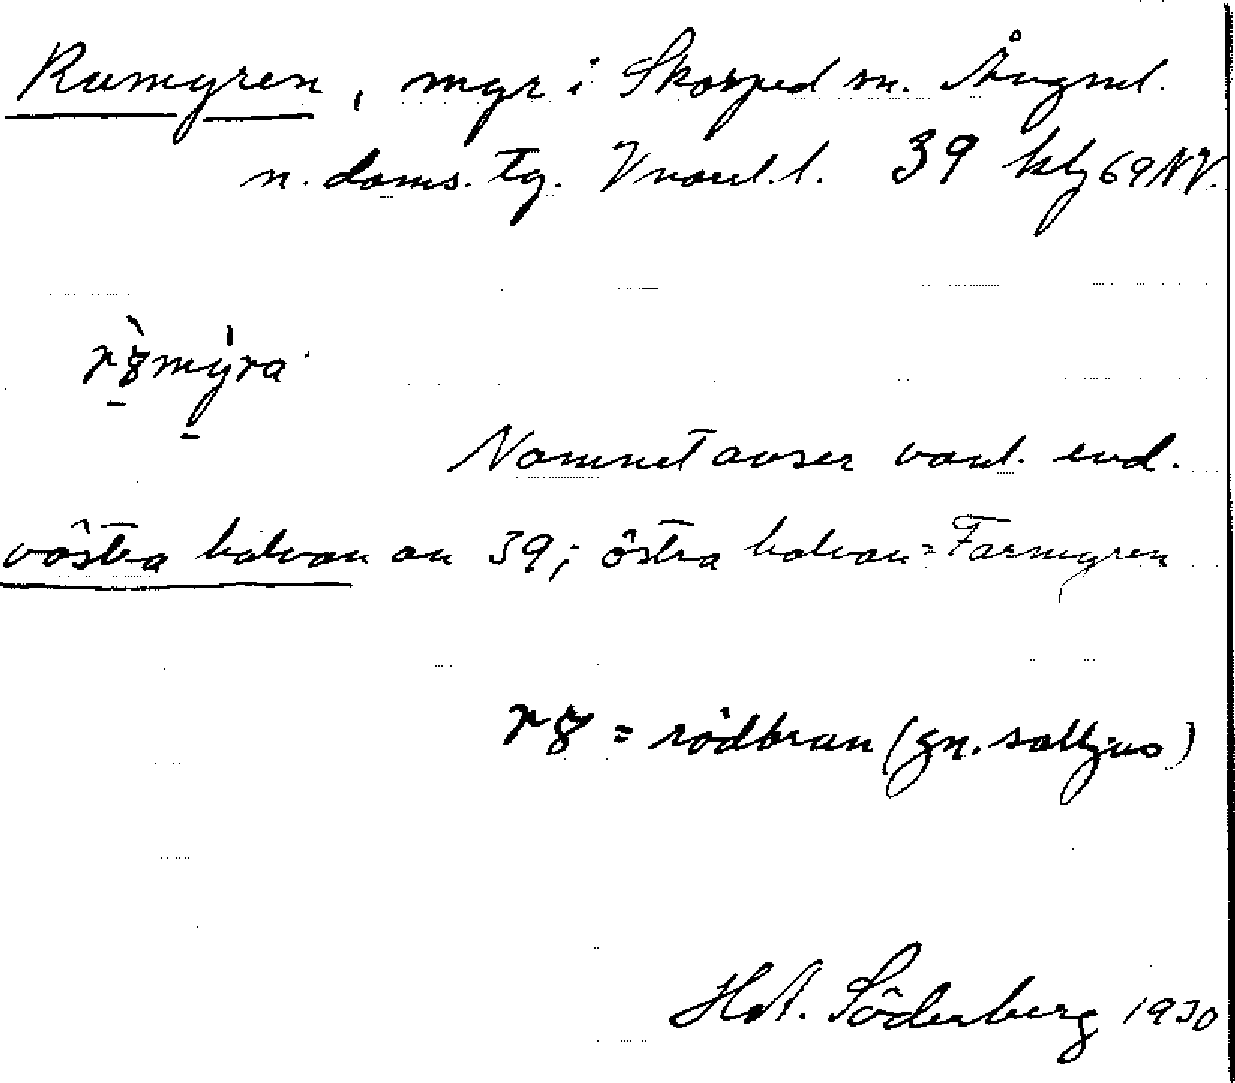 Rumyren, myr i Skorped sn. Ångml.
n. doms. Tg. 39 kbl 69NV.
myra
Namnet avser vanl. end.
västra halvan av 39; östra halvan = Farmyren
= rödbrun (gn. saltljus)
Hst. Söderberg 1930